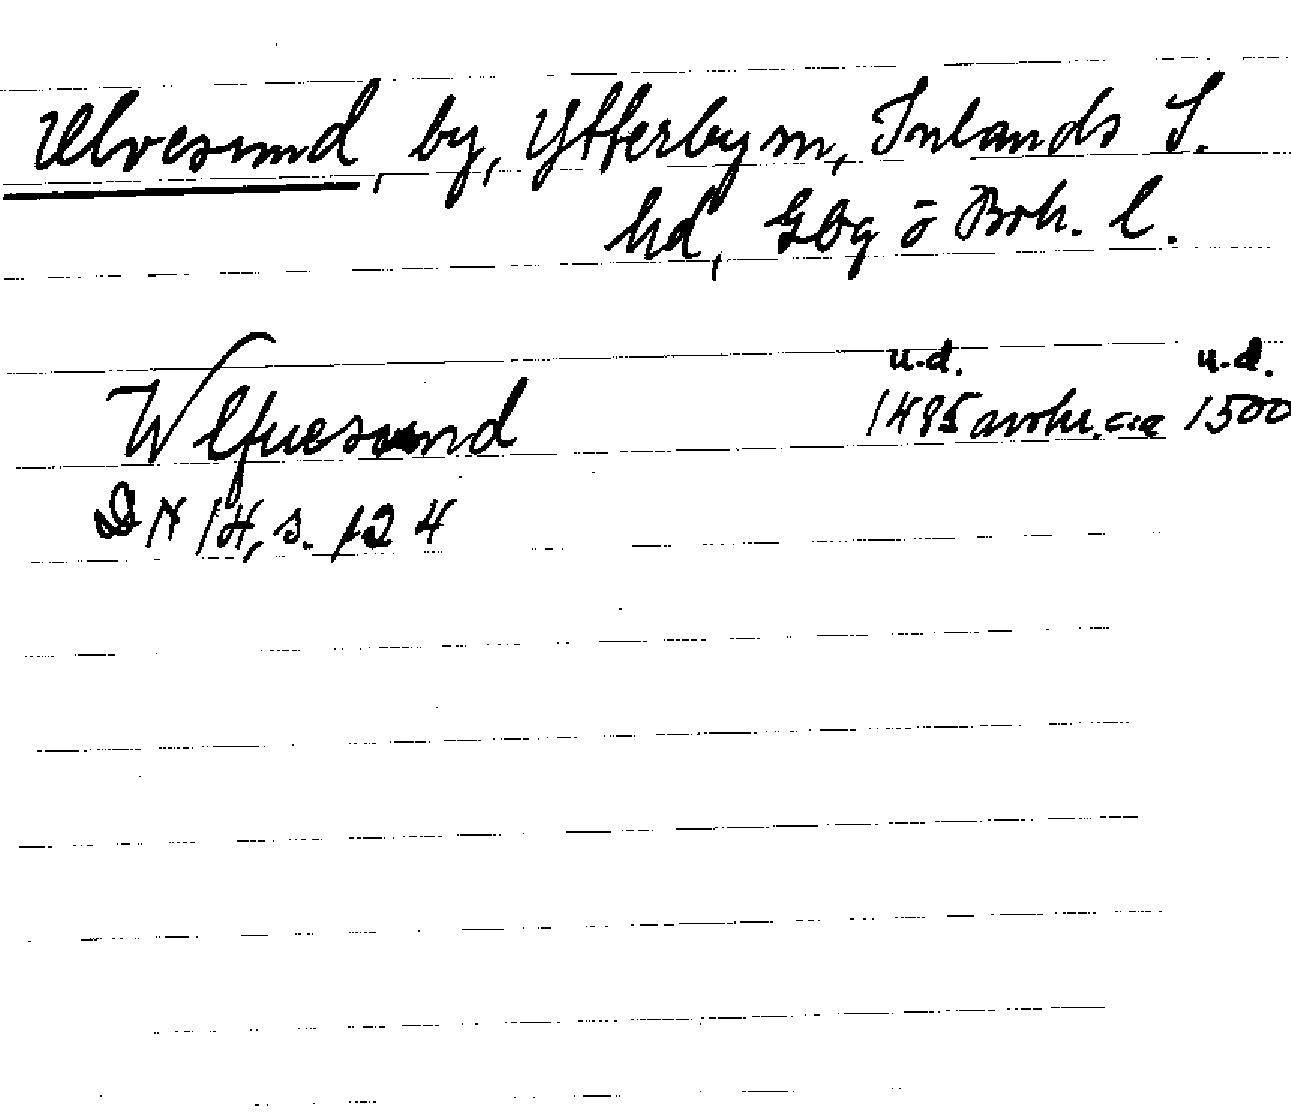 Ulvesund, by, Ytterby sn, Inlands S.
hd, Gbg o Boh. l.
u.d. u.d.
Wlfuesund 1495 avskr. ca 1500
DN 14, s. 124